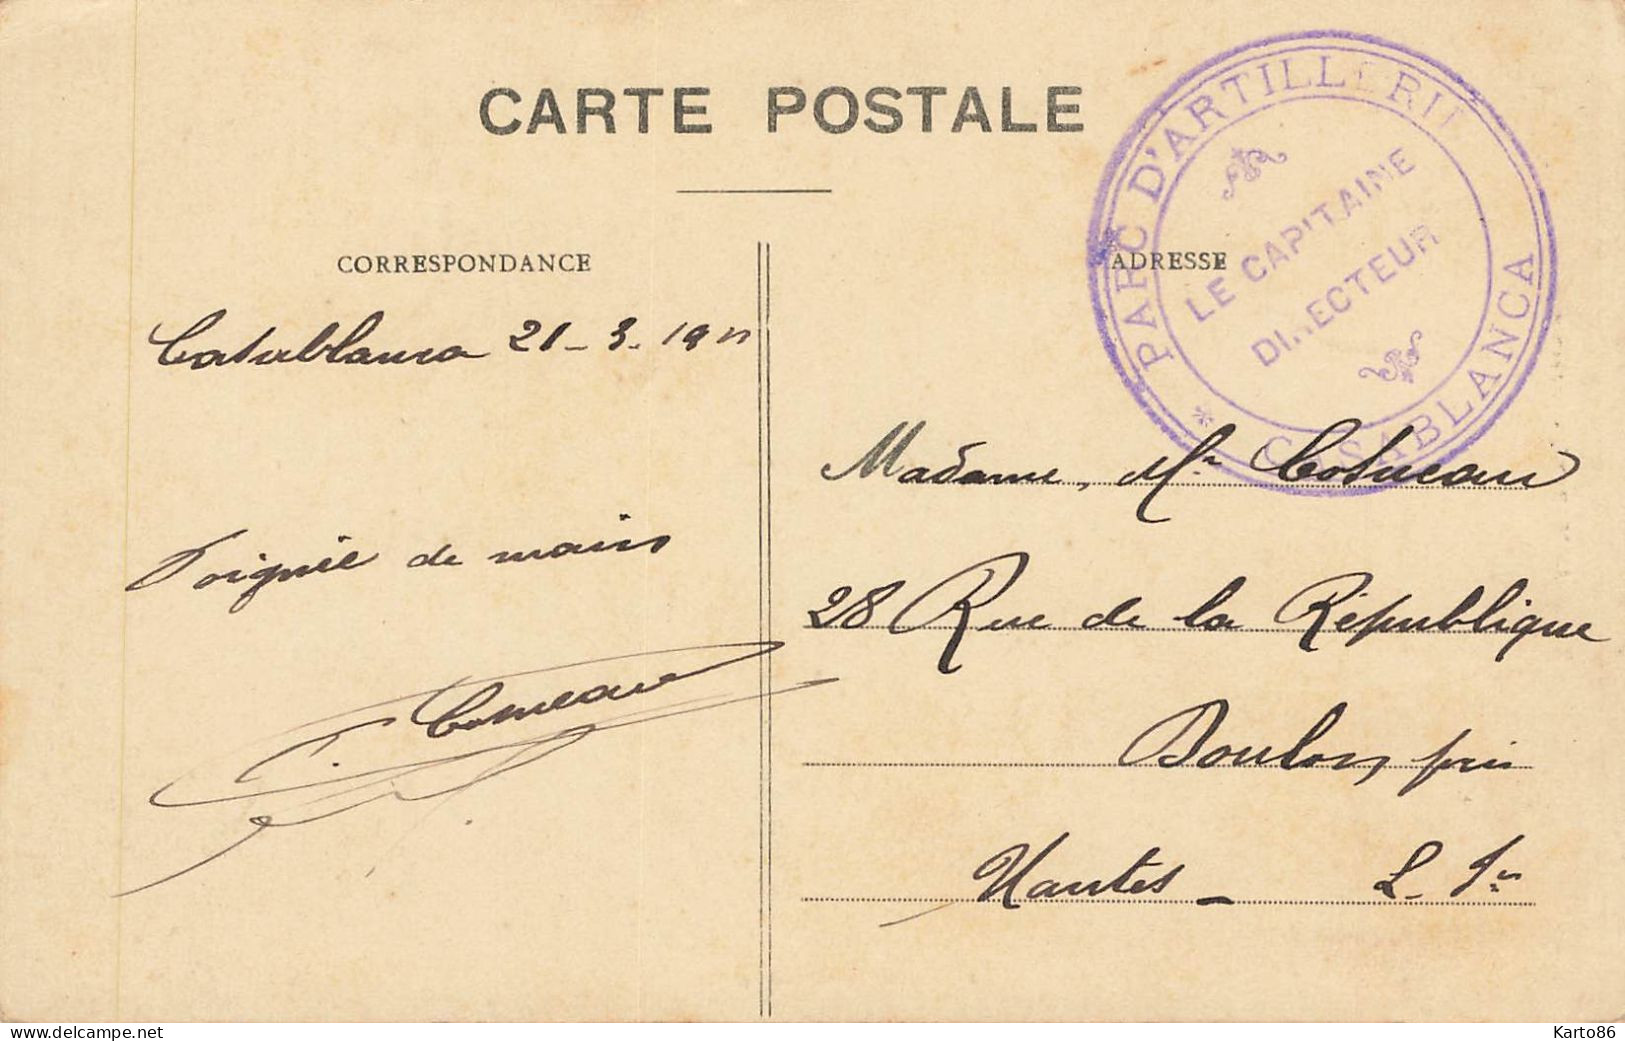 CARTE POSTALE
PARC D'ARTILLERIE
* CASABLANCA
LE CAPITAINE
DIRECTEUR
CORRESPONDANCE
ADRESSE
Casablanca 21-3-1911
Poignée de mains
Madame, Mr
28 Rue de la République
Doulon près
Nantes - L. Ire
www.delcampe.net
Karto86